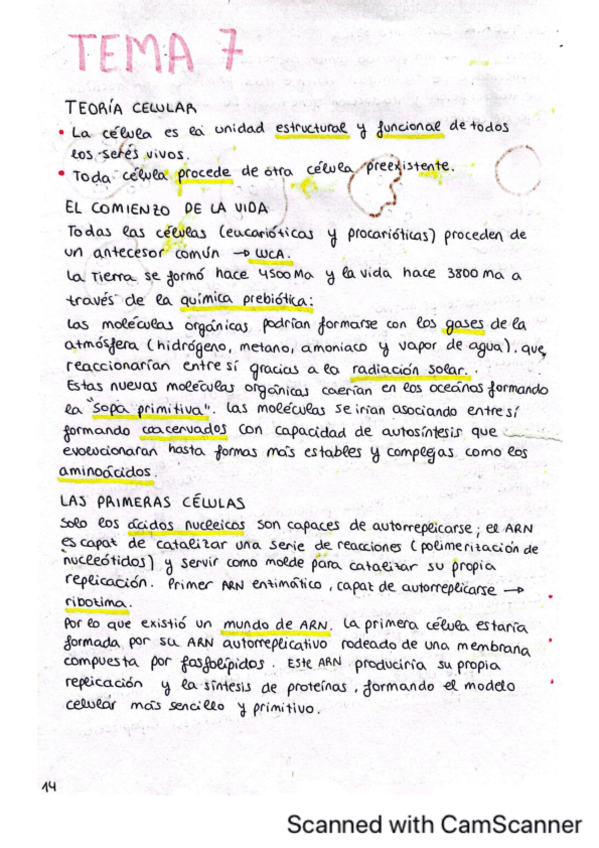 TEMA 7
TEORÍA CELULAR
• La célula es la unidad estructural y funcional de todos
los seres vivos.
• Toda célula procede de otra célula preexistente.
EL COMIENZO DE LA VIDA
Todas las células (eucarióticas y procarióticas) proceden de
un antecesor común → LUCA.
La Tierra se formó hace 4500 Ma y la vida hace 3800 ma a
través de la química prebiótica:
Las moléculas orgánicas podrían formarse con los gases de la
atmósfera (hidrógeno, metano, amoniaco y vapor de agua), que
reaccionarían entre sí gracias a la radiación solar.
Estas nuevas moleculas orgánicas caerían en los oceános formando
la "sopa primitiva". Las moléculas se irían asociando entre sí
formando coacervados con capacidad de autosíntesis que
evolucionaran hasta formas más estables y complejas como los
aminoácidos.
LAS PRIMERAS CÉLULAS
Solo los ácidos nucleicos son capaces de autorreplicarse; el ARN
es capaz de catalizar una serie de reacciones (polimerización de
nucleótidos) y servir como molde para catalizar su propia
replicación. Primer ARN enzimático, capaz de autorreplicarse →
ribozima.
Por lo que existió un mundo de ARN. La primera célula estaría
formada por su ARN autorreplicativo rodeado de una membrana
compuesta por fosfolípidos. Este ARN produciría su propia
replicación y la síntesis de proteínas, formando el modelo
celular más sencillo y primitivo.
14
Scanned with CamScanner